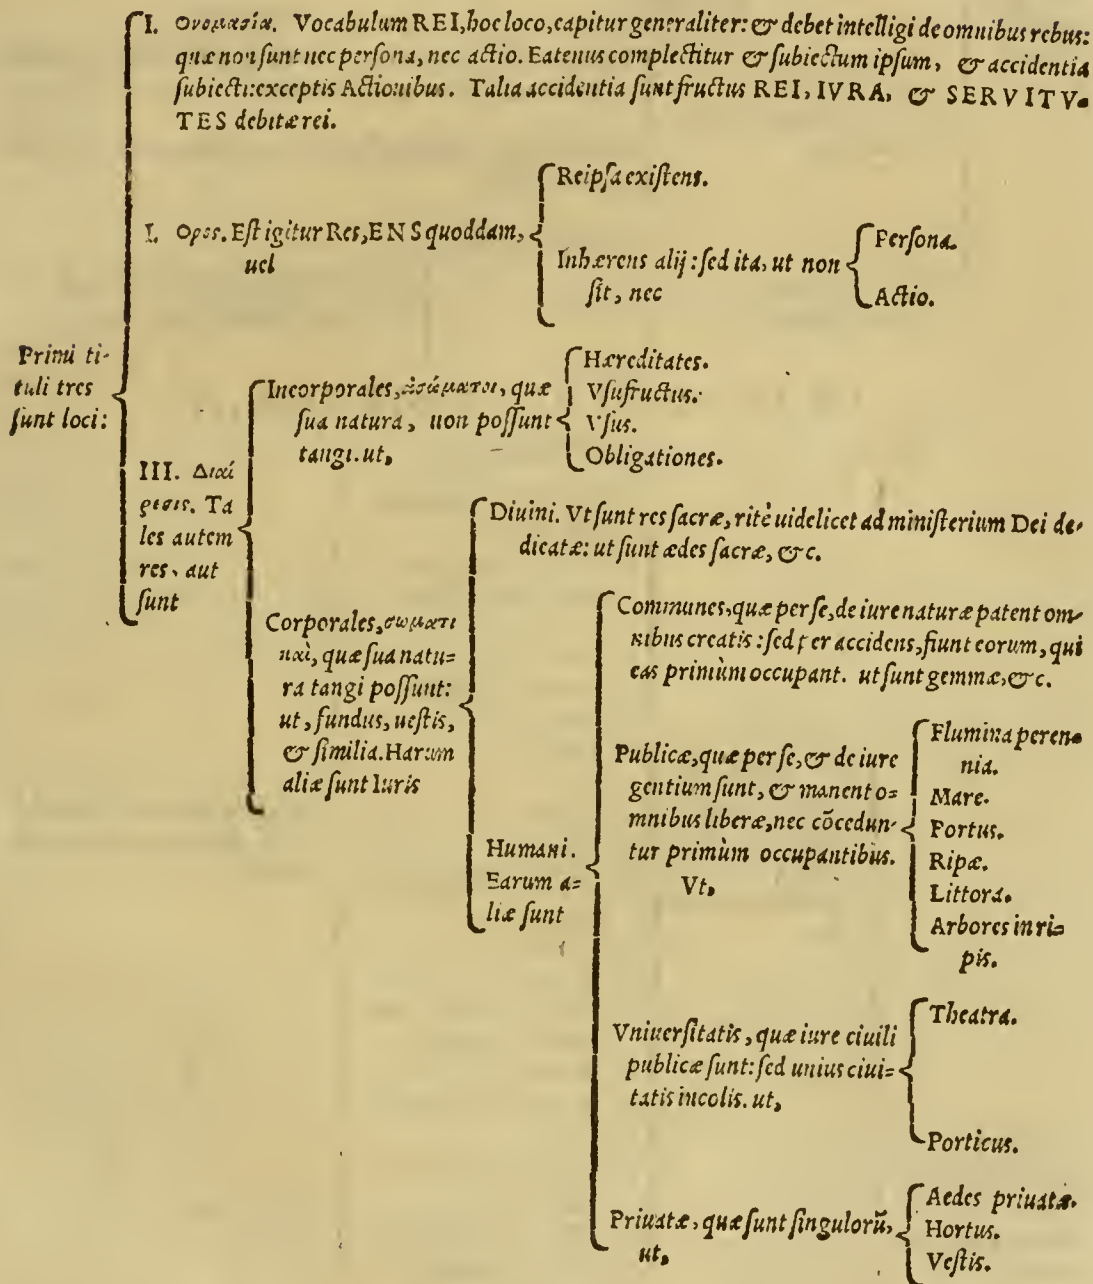 I. Ονομασία. Vocabulum REI, hoc loco, capitur generaliter: & debet intelligi de omnibus rebus:
quæ non sunt nec persona, nec actio. Eatenus complectitur & subiectum ipsum, & accidentia
subiecti: exceptis Actionibus. Talia accidentia sunt fructus REI, IVRA, & SERVITV-
TES debitæ rei.
I. Ορος. Est igitur Res, ENS quoddam,
uel
Reipsa existens.
Inhærens alij: sed ita, ut non
sit, nec
Persona.
Actio.
Primi ti-
tuli tres
sunt loci:
III. Διαί
ρεσις. Ta
les autem
res, aut
sunt
Incorporales, ἀσώματοι, quæ
sua natura, non possunt
tangi. ut,
Hæreditates.
Vsufructus.
Vsus.
Obligationes.
Corporales, σωματι
καὶ, quæ sua natu=
ra tangi possunt:
ut, fundus, uestis,
& similia. Harum
aliæ sunt Iuris
Diuini. Vt sunt res sacræ, ritè uidelicet ad ministerium Dei de-
dicatæ: ut sunt ædes sacræ, &c.
Humani.
Earum a=
liæ sunt
Communes, quæ per se, de iure naturæ patent om-
nibus creatis: sed per accidens, fiunt eorum, qui
eas primùm occupant. ut sunt gemmæ, &c.
Publicæ, quæ per se, & de iure
gentium sunt, & manent o=
mnibus liberæ, nec cōcedun-
tur primùm occupantibus.
Vt,
Flumina peren-
nia.
Mare.
Portus.
Ripæ.
Littora.
Arbores in ri=
pis.
Vniuersitatis, quæ iure ciuili
publicæ sunt: sed unius ciui=
tatis incolis. ut,
Theatra.
Porticus.
Priuatæ, quæ sunt singulorũ,
ut,
Aedes priuatæ.
Hortus.
Vestis.